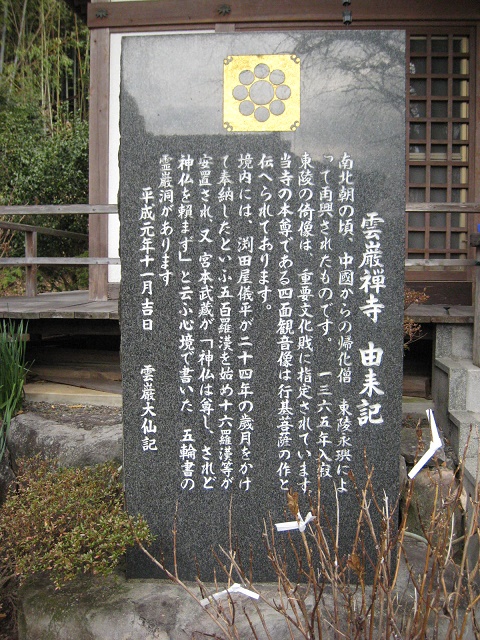 雲巌禅寺 由来記
南北朝の頃、中國からの帰化僧 東陵永璵によ
って再興されたものです。 一三六五年入寂
東陵の倚像は、重要文化財に指定されています。
当寺の本尊である四面観音像は行基菩薩の作と
伝へられております。
境内には、渕田屋儀平が二十四年の歳月をかけ
て奉納したといふ五百羅漢を始め十六羅漢等が
安置され、又、宮本武蔵が「神仏は尊し、されど
神仏を頼まず」と云ふ心境で書いた 五輪書の
霊巌洞があります
平成元年十一月吉日 雲巌大仙記